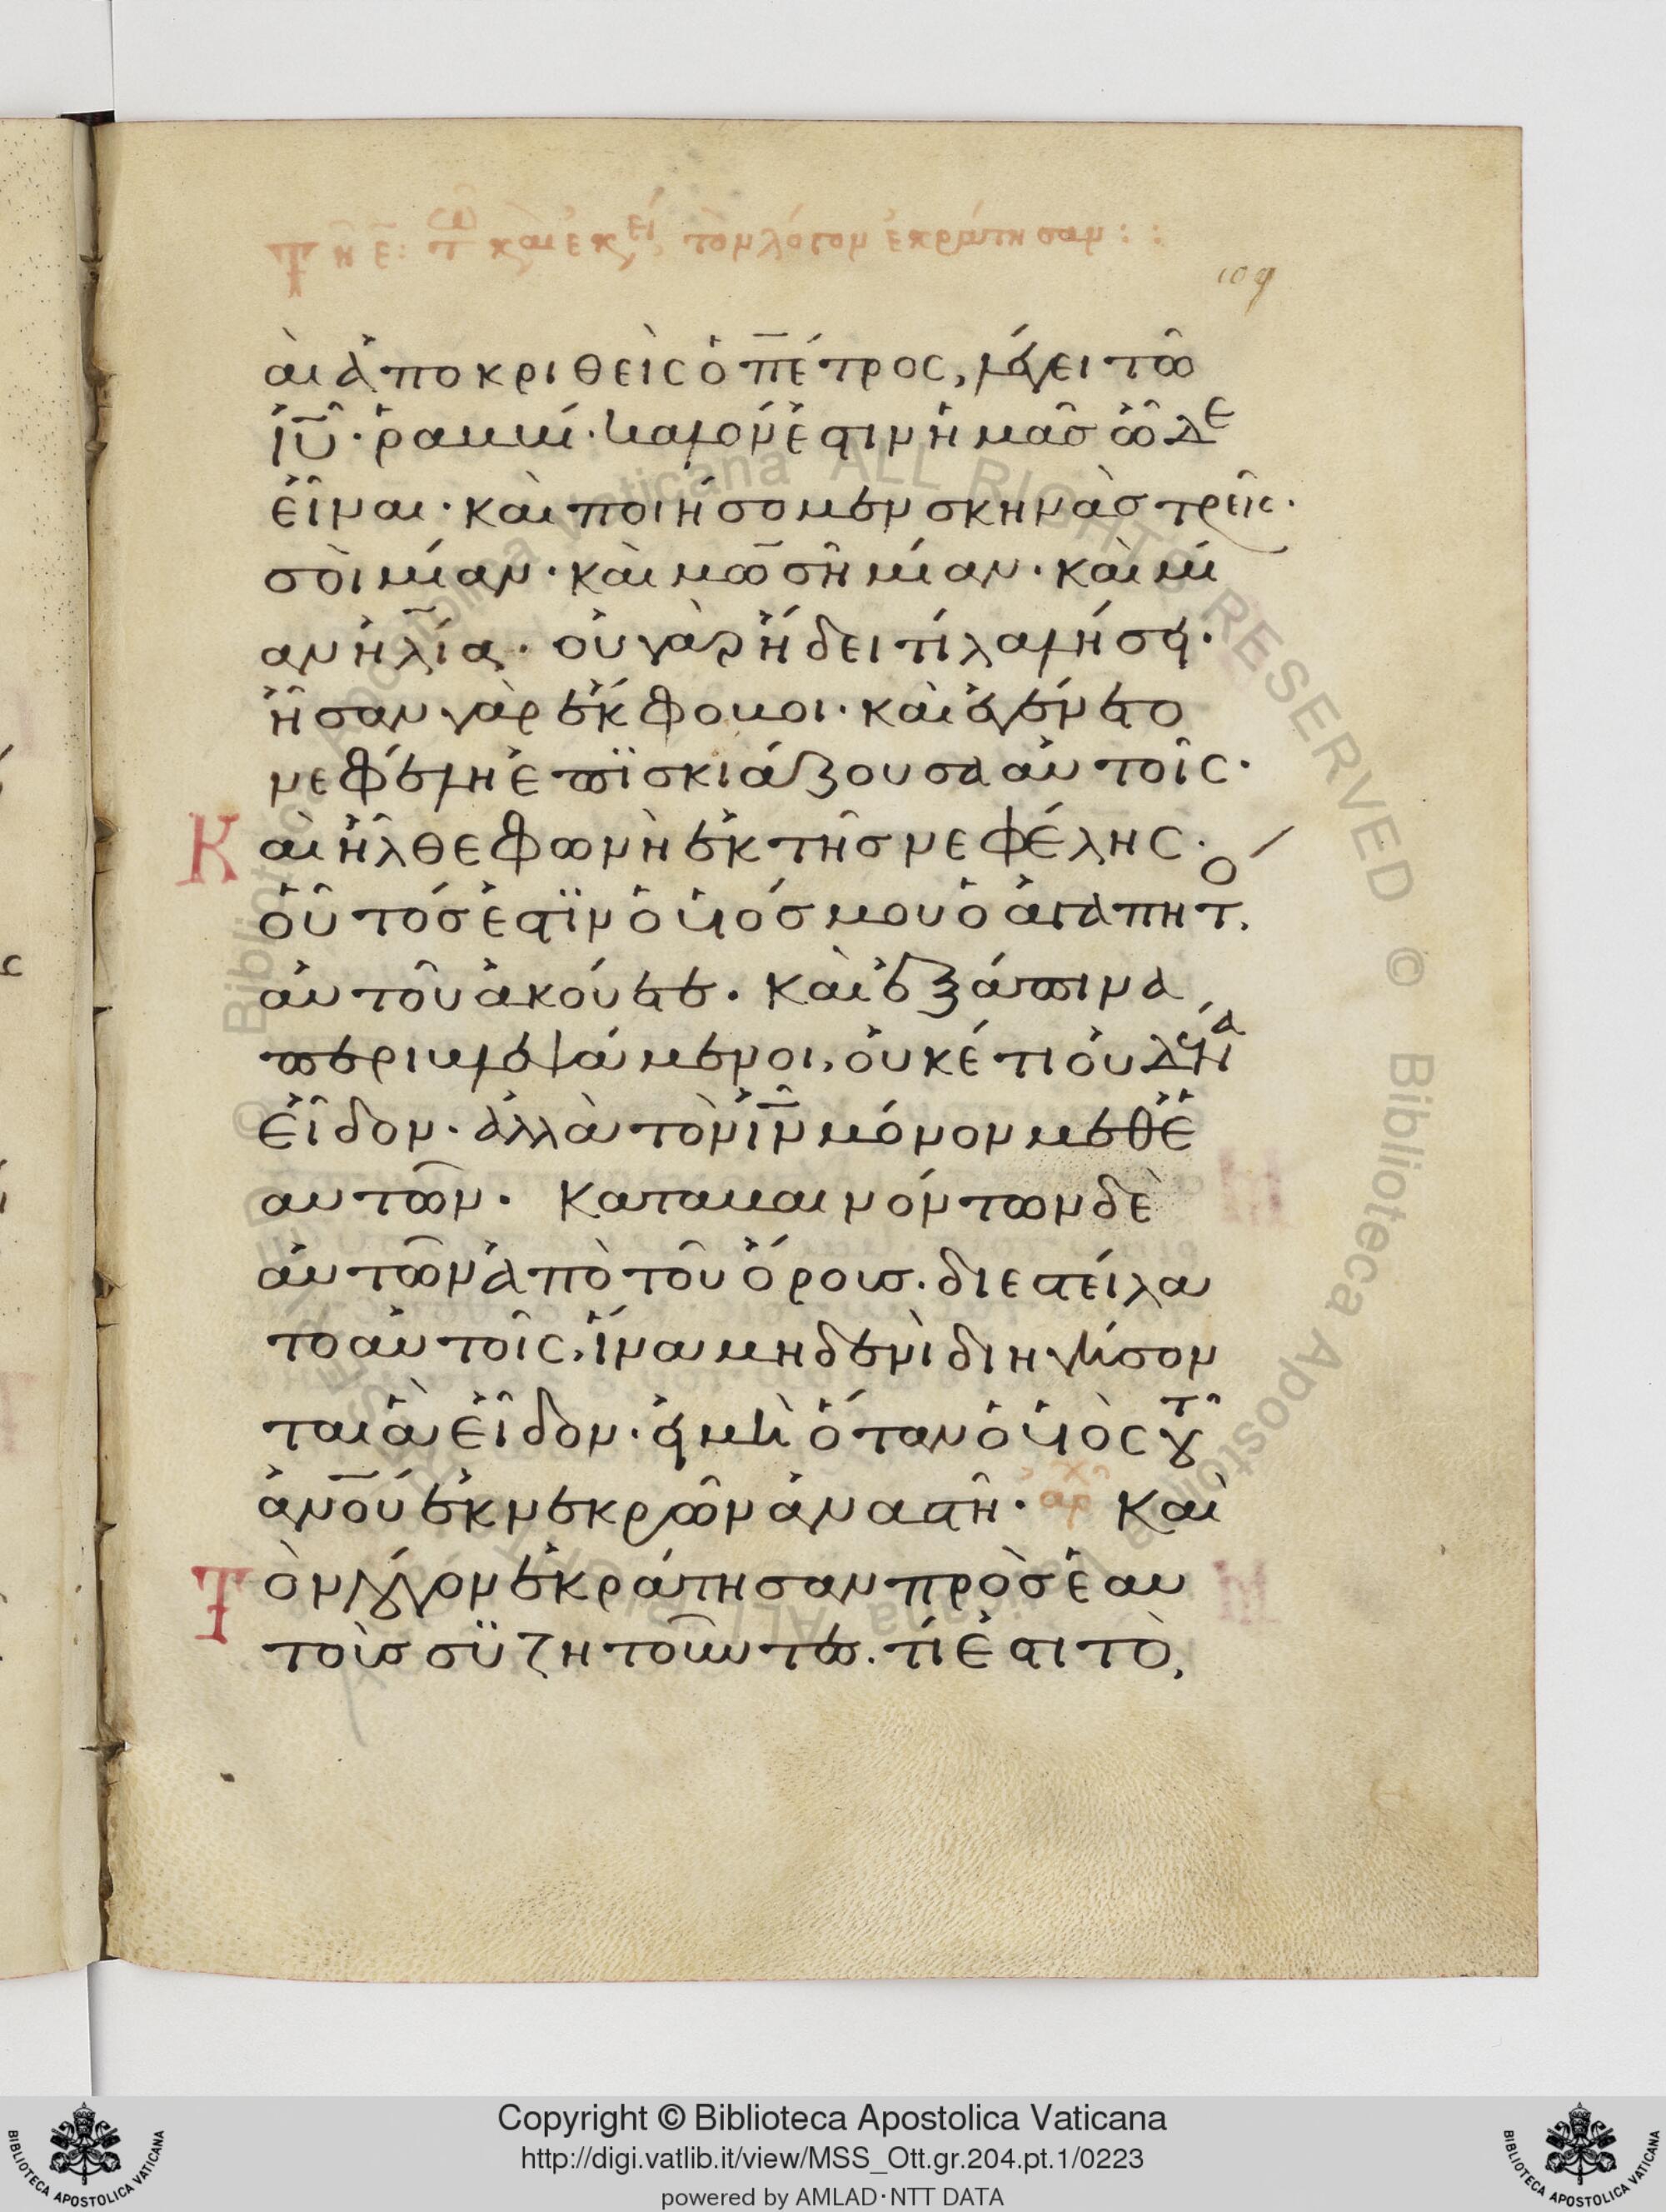 Τῆ ε̄: τω κ(αι) εκει τὸν λόγον ἐκράτησαν::
109
ὰι ἀποκριθεὶς ὁ πέτρος, λέγει τῶ
ἰ̅υ̅· ῥαββί· καλόν ἐστιν ἡμᾶσ ὧδε
εἶναι· καὶ ποιήσομεν σκηνὰσ τρεῖς·
σοὶ μίαν· καὶ μω̅σῆ μίαν· καὶ μί
αν ἡλίᾳ· οὐ γὰρ ἤδει τί λαλήσῃ·
ἦσαν γὰρ ἔκφοβοι· καὶ ἐγένετο
νεφέλη ἐπϊσκιάζουσα ἀυτοῖς·
Κ αὶ ἦλθε φωνὴ ἐκ τῆσ νεφέλης·
οὗτόσ ἐστϊν ὁ υἱόσ μου ὁ ἀγαπητό.
ἀυτοῦ ἀκούετε. Καὶ ἐξάπινα
περιβλεψάμενοι, ὀυκέτι ὀυδένα
εἶδον· ἀλλὰ τὸν ἰ̅ν̅ μόνον μεθ ἑ
αυτῶν· Καταβαινόντων δὲ
ἀυτῶν ἀπὸ τοῦ ὄρουσ. διεστείλα
το ἀυτοῖς, ἵνα μηδενὶ διηγήσον
ται ἃ εἶδον· εἰ μὴ ὅταν ὁ υἱὸς τοῦ
ἀν̅ο̅ύ̅ ἐκ νεκρῶν ἀναστῆ· ἀρχ Καὶ
Τ ὸν λόγον ἐκράτησαν πρὸσ ἑαυ
τοὺσ σϋζητοῦντεσ. τί ἐστι τὸ,
Copyright © Biblioteca Apostolica Vaticana
http://digi.vatlib.it/view/MSS_Ott.gr.204.pt.1/0223
powered by AMLAD·NTT DATA